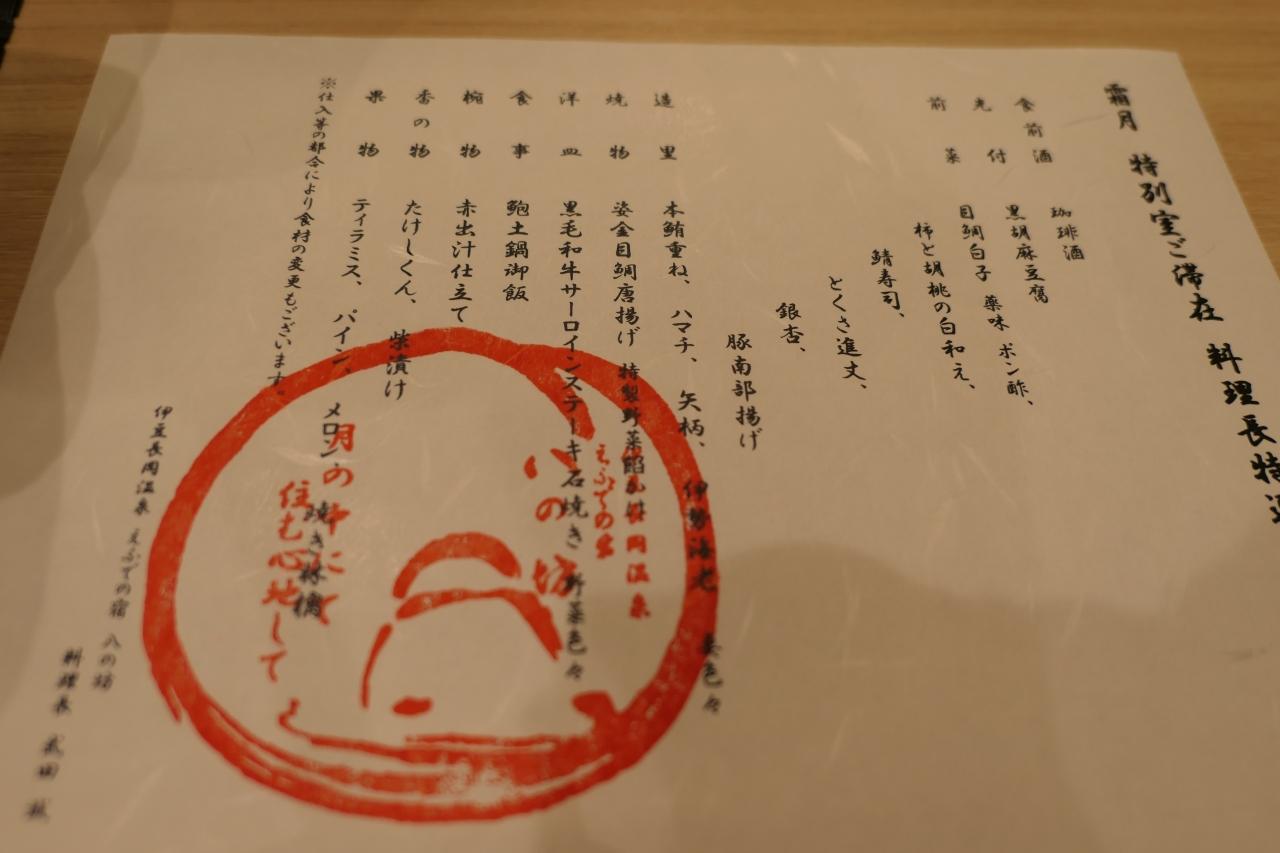 霜月 特別室ご滞在 料理長特選
食前酒 珈琲酒
先付 黒胡麻豆腐
目鯛白子 薬味 ポン酢、
前菜 柿と胡桃の白和え、
鯖寿司、
とくさ進丈、
銀杏、
豚南部揚げ
造里 本鮪重ね、ハマチ、矢柄、伊勢海老 妻色々
焼物 姿金目鯛唐揚げ 特製野菜餡かけ
洋皿 黒毛和牛サーロインステーキ石焼き 野菜色々
食事 鮑土鍋御飯
椀物 赤出汁仕立て
香の物 たけしくん、柴漬け
果物 ティラミス、パイン、メロン、焼き林檎
※仕入等の都合により食材の変更もございます。
伊豆長岡温泉 えふでの宿 八の坊
料理長 武田
長岡温泉
えふでの宿
八の坊
月の中にて
住む心地して